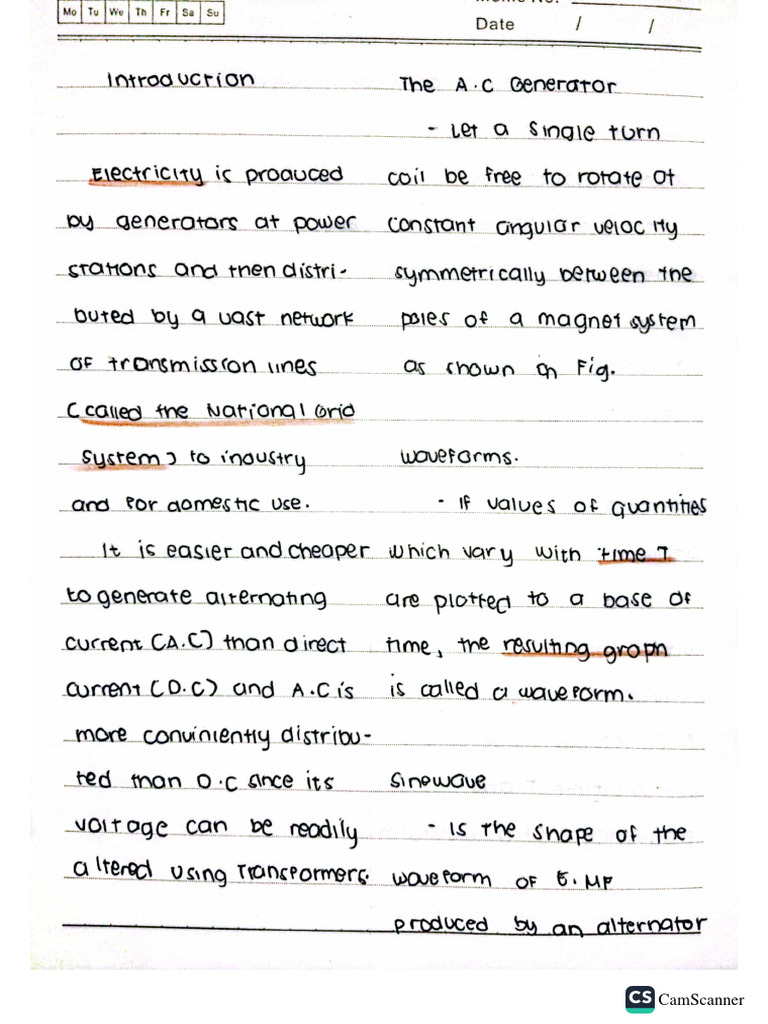 Mo Tu We Th Fr Sa Su
Memo No.
Date / /
Introduction
Electricity is produced
by generators at power
stations and then distri-
buted by a vast network
of transmission lines
( called the National Grid
system ) to industry
and for domestic use.
It is easier and cheaper
to generate alternating
current (A.C) than direct
current (D.C) and A.C is
more conviniently distribu-
ted than D.C since its
voltage can be readily
altered using Transformers.
The A.C Generator
- Let a single turn
coil be free to rotate at
constant angular velocity
symmetrically between the
poles of a magnet system
as shown on Fig.
waveforms.
- If values of quantities
which vary with time T
are plotted to a base of
time, the resulting graph
is called a waveform.
Sinewave
- Is the shape of the
waveform of E.MF
produced by an alternator
CS CamScanner